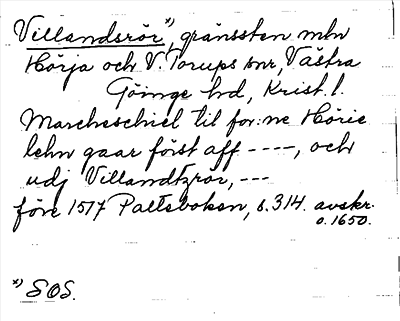 Villandsrör*), gränssten mln
Hörja och V. Torups snr, Västra
Göinge hd, Krist. l.
Marcheschiel til for:ne Hörie
lehn gaar först aff ----, och
udj Villandtzrör, ---
före 1517 Paltsboken, s. 314. avskr.
o. 1650.
*) SOS.